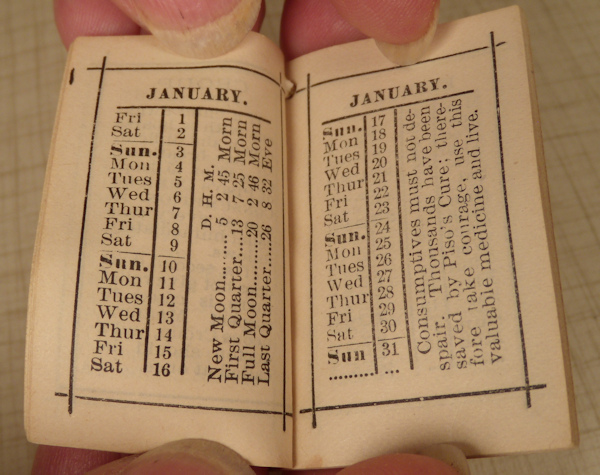 JANUARY.
Fri 1
Sat 2
Sun. 3
Mon 4
Tues 5
Wed 6
Thur 7
Fri 8
Sat 9
Sun. 10
Mon 11
Tues 12
Wed 13
Thur 14
Fri 15
Sat 16
D. H. M.
New Moon........ 5 2 45 Morn
First Quarter....13 7 25 Morn
Full Moon..........20 2 46 Morn
Last Quarter.....26 8 32 Eve
JANUARY.
Sun. 17
Mon 18
Tues 19
Wed 20
Thur 21
Fri 22
Sat 23
Sun. 24
Mon 25
Tues 26
Wed 27
Thur 28
Fri 29
Sat 30
Sun 31
......... ...
Consumptives must not de-
spair. Thousands have been
saved by Piso's Cure; there-
fore take courage, use this
valuable medicine and live.